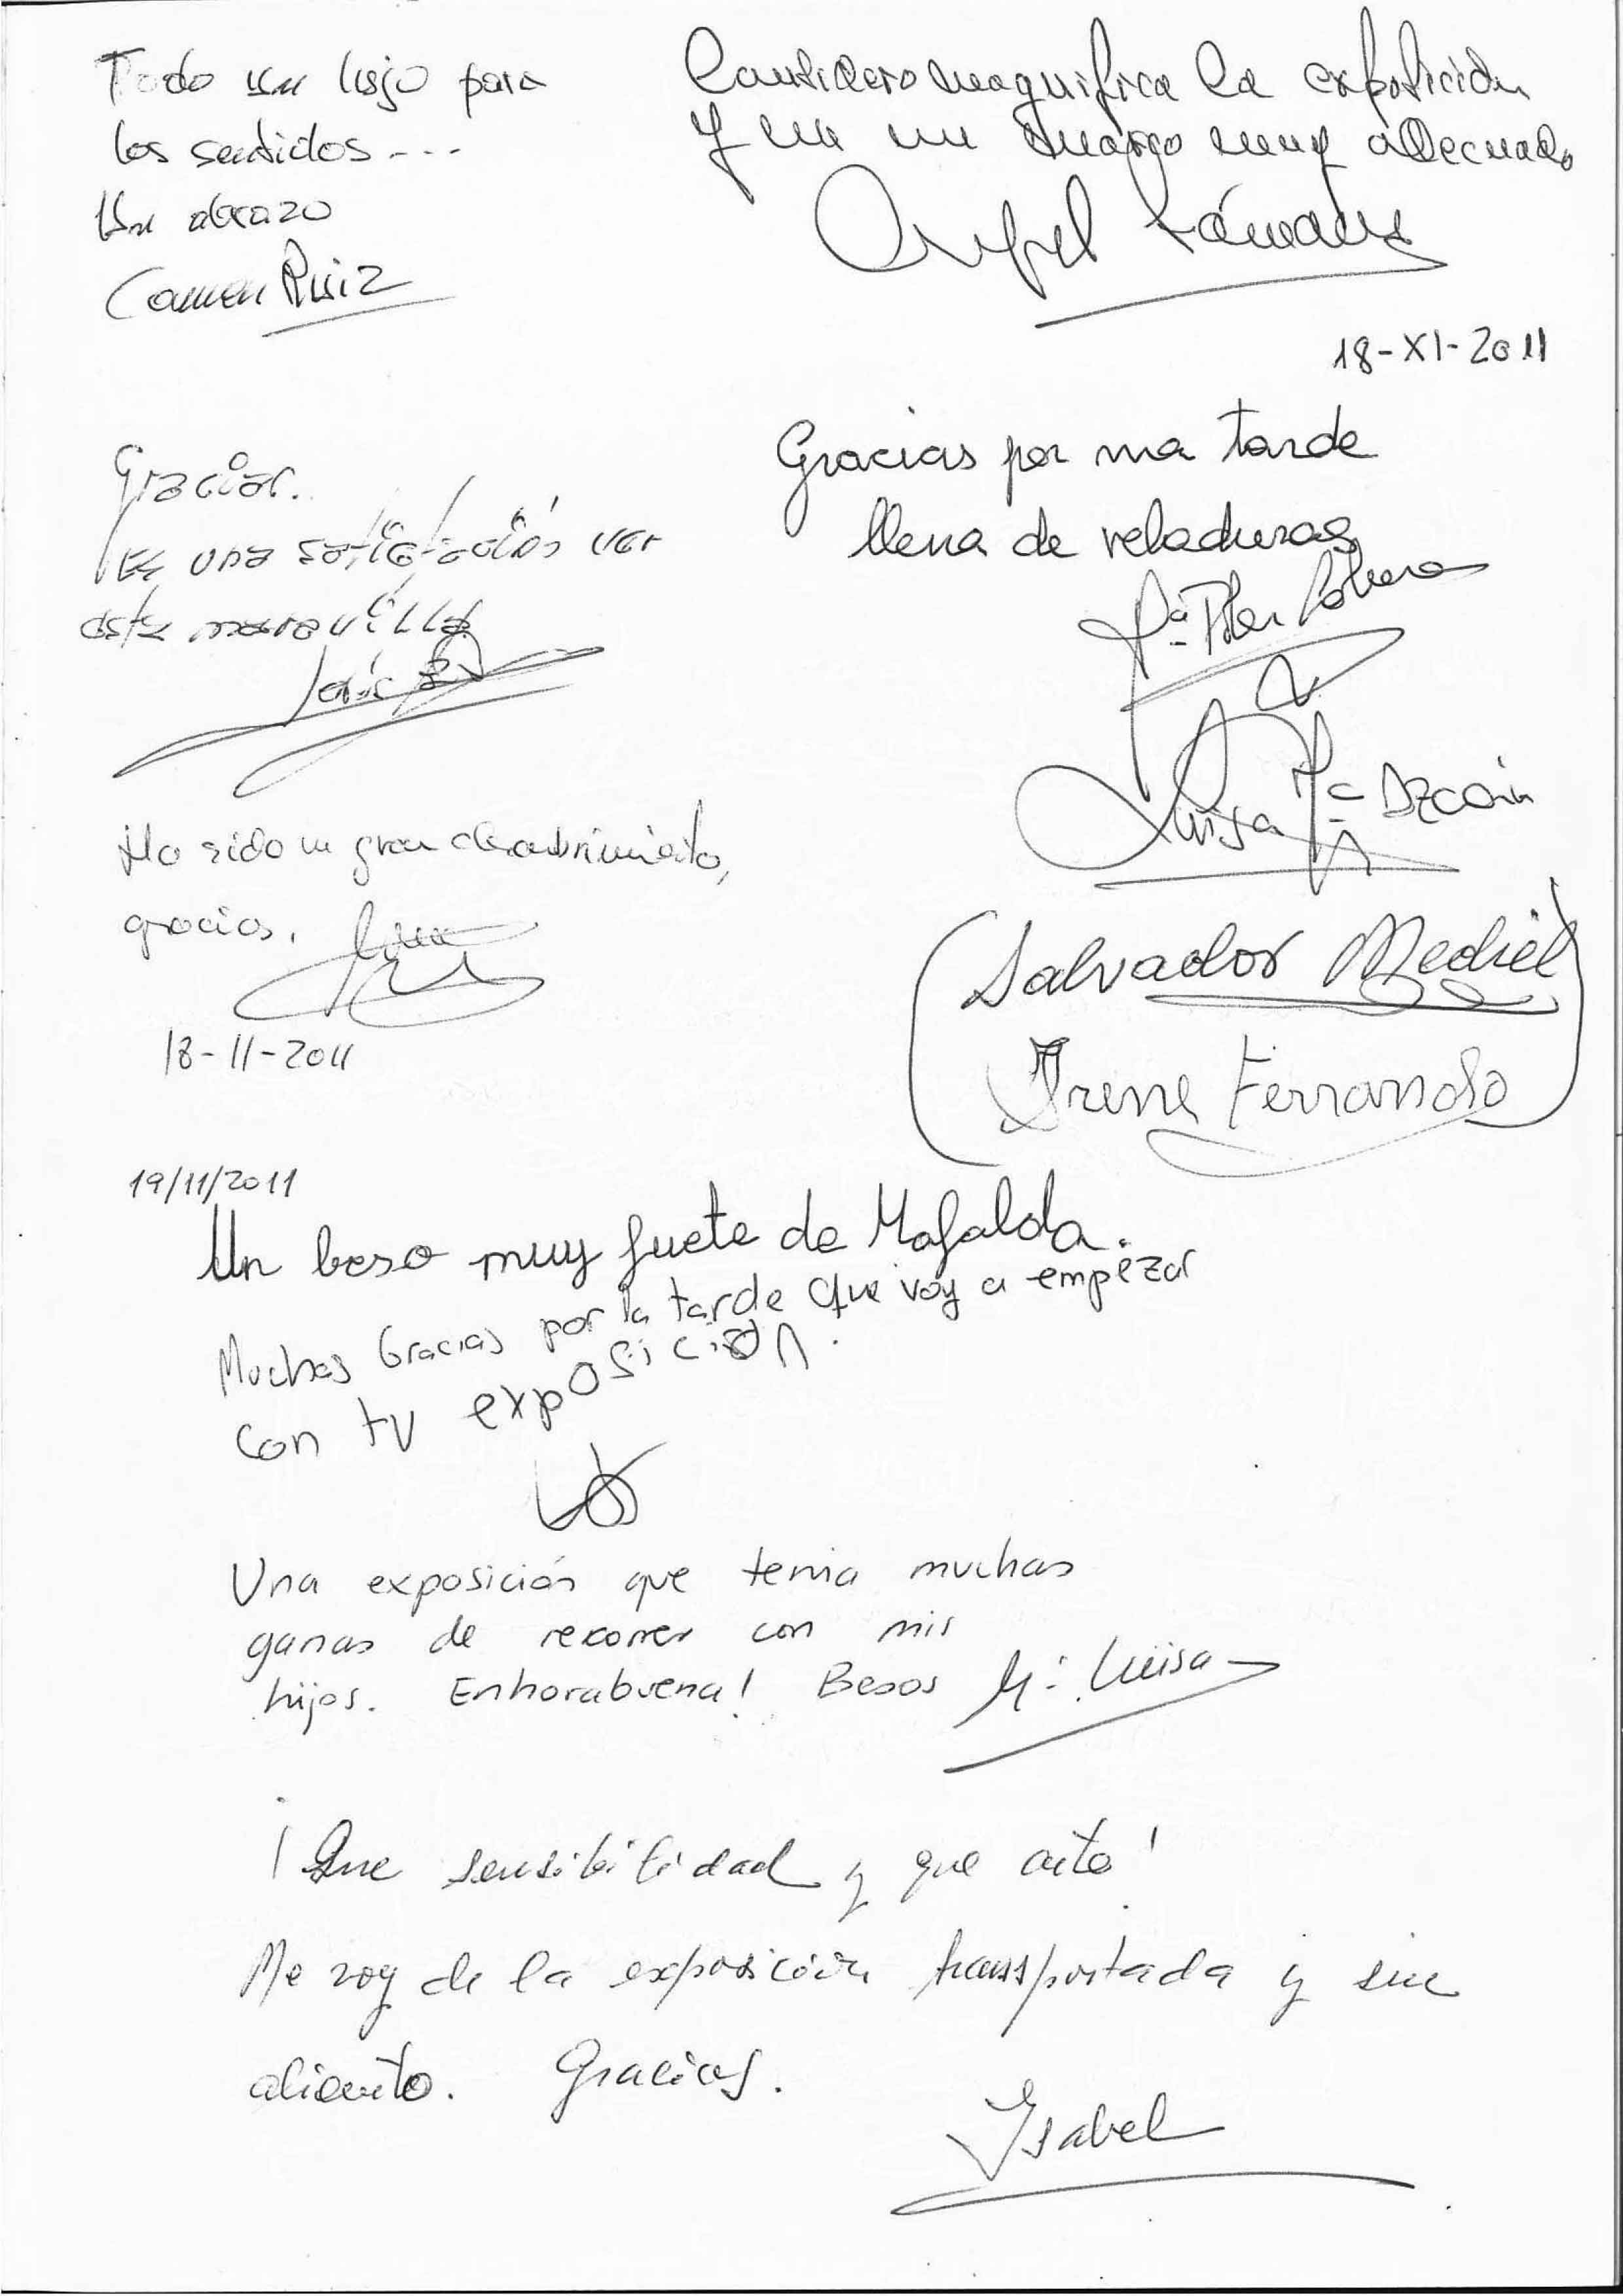 Todo un lujo para
los sentidos...
Un abrazo
Carmen Ruiz
Considero magnifica la exposición
y en un marco muy adecuado
Angel
18-XI-2011
Gracias.
Es una satisfacción ver
esta maravilla
Gracias por una tarde
llena de veladuras
Mª Pilar
Luisa Mª Azcoin
Ha sido un gran descubrimiento,
gracias.
18-11-2011
Salvador Mediel
Irene Ferrando
19/11/2011
Un beso muy fuete de Mafalda.
Muchas Gracias por la tarde que voy a empezar
con tu exposición.
Una exposición que tenia muchas
ganas de recorrer con mis
hijos. Enhorabuena! Besos Mª Luisa
¡Que sensibilidad y que arte!
Me voy de la exposición transportada y sin
aliento. Gracias.
Isabel